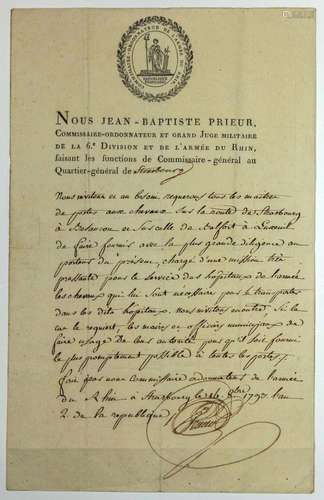 COMMISSAIRE-ORDONNATEUR DE L'ARMÉE DU RHIN
RÉPUBLIQUE FRANÇAISE
NOUS JEAN-BAPTISTE PRIEUR,
COMMISSAIRE-ORDONNATEUR ET GRAND JUGE MILITAIRE
DE LA 6.e DIVISION ET DE L'ARMÉE DU RHIN,
faisant les fonctions de Commissaire-général au
Quartier-général de Strasbourg
Nous invitons et au besoin requerons tous les maitres
de postes aux chevaux sur la route de Strasbourg
à Besancon et sur celle de Balfort à Luxeuil
de faire fournir avec la plus grande diligence au
porteur du présent, chargé d'une mission très
pressante pour le service des hopitaux de l'armée
les chevaux qui lui sont nécessaire pour se transporter
dans les dits hopitaux, nous invitons en outre, si le
cas le requiert, les maires ou officiers municipaux de
faire usage de leur autorité pour qu'il soit fourni
le plus promptement possible à toutes les postes,
fait par nous Commissaire ordonnateur de l'armée
du Rhin à Strasbourg le 16 8bre 1793 l'an
2 de la republique
Prieur